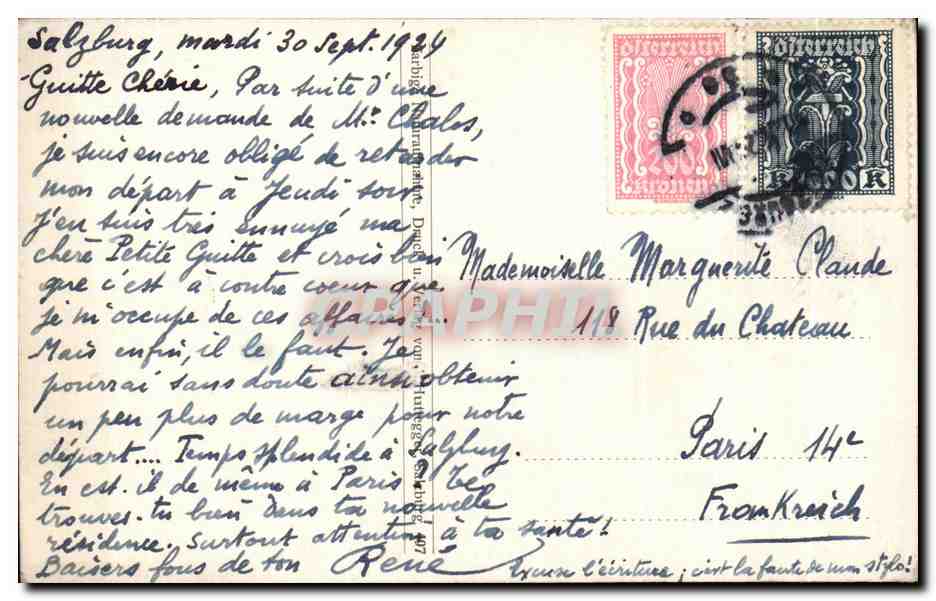 Salzburg, mardi 30 Sept. 1924
Guitte Chérie, Par suite d'une
nouvelle demande de Mr. Chalos,
je suis encore obligé de retarder
mon départ à Jeudi soir
J'en suis très ennuyé ma
chère Petite Guitte et crois bien
que c'est à contre coeur que
je m'occupe de ces affaires!...
Mais enfin, il le faut. Je
pourrai sans doute ainsi obtenir
un peu plus de marge pour notre
départ.... Temps splendide à Salzburg.
En est-il de même à Paris? Te
trouves-tu bien dans ta nouvelle
résidence. Surtout attention à ta santé!
Baisers fous de ton René
Excuse l'écriture; c'est la faute de mon stylo!
Druck u. Verlag von Huttegger, Salzburg. 407
Österreich
200
Kronen
Österreich
K K
Mademoiselle Marguerite Claude
118 Rue du Chateau
Paris 14e
Frankreich